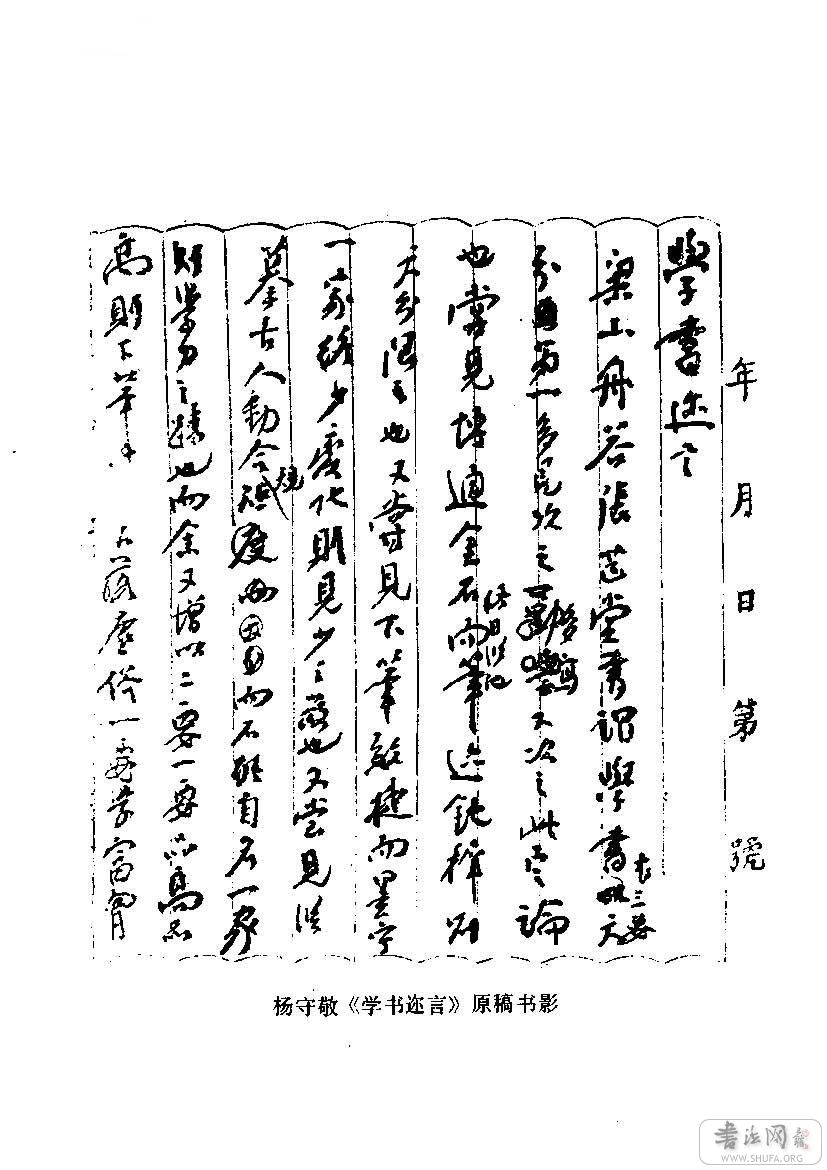 年 月 日 第 號
學書迩言
梁山舟答張芑堂書謂學書有三要天
分第一多見次之多寫又次之此定論
也嘗見博通金石而筆迹鈍稺則
天分限之也又嘗見下筆敏捷而墨守
一家終少變化則見少之弊也又嘗見臨
摹古人動合規度而不能自名一家
則學力之也而余又增以二要一要品高品
高則下筆 不落塵俗一要學富胸
杨守敬《学书迩言》原稿书影
书法网
WWW.SHUFA.ORG